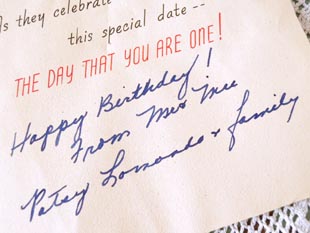 As they celebrate
this special date--
THE DAY THAT YOU ARE ONE!
Happy Birthday!
From Mr & Mrs
Patsy Lomonds & family